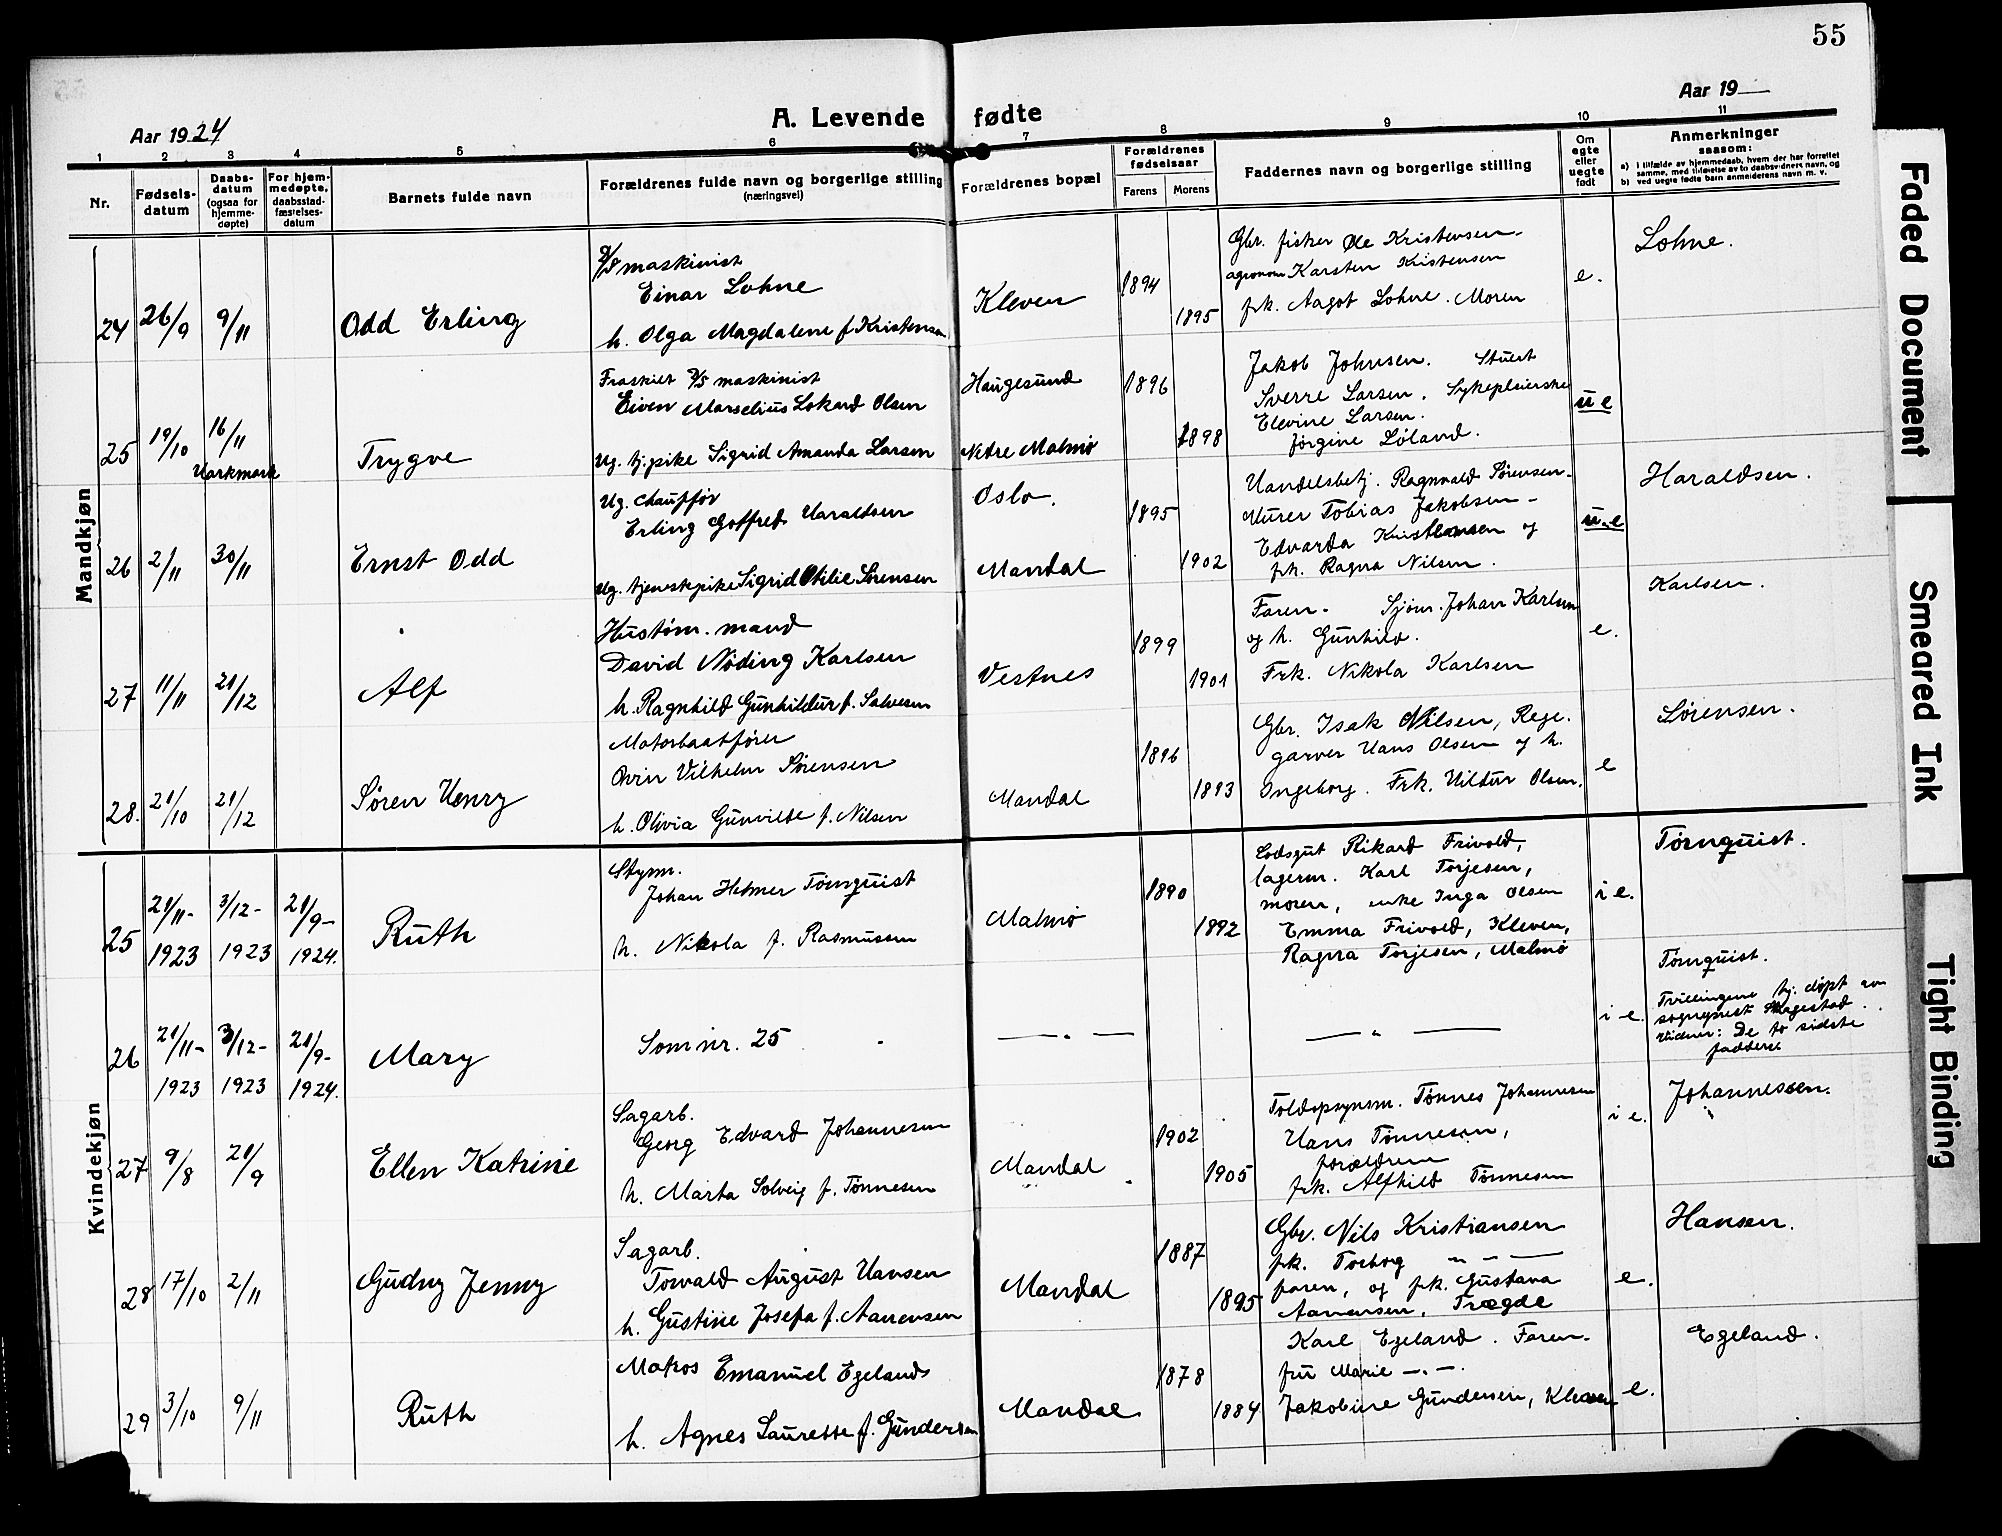 55
Aar 1924
A. Levende fødte
Aar 19
1 2 3 4 5 6 7 8 9 10 11
Nr.
Fødsels-
datum
Daabs-
datum
(ogsaa for
hjemme-
døpte)
For hjem-
medøpte,
daabsstad-
fæstelses-
datum
Barnets fulde navn
Forældrenes fulde navn og borgerlige stilling
(næringsvei)
Forældrenes bopæl
Forældrenes
fødselsaar
Farens Morens
Faddernes navn og borgerlige stilling
Om
egte
eller
uegte
født
Anmerkninger
saasom:
a) i tilfælde av hjemmedaab, hvem der har forrettet
samme, med tilføielse av to daabsvidners navn, og
b) ved uegte fødte barn anmelderens navn m. v.
Mandkjøn
24 26/9 9/11 Odd Erling
D/S maskinist
Einar Lohne
h. Olga Magdalene f. Kristensen
Kleven
1894
1895
Gbr. fisker Ole Kristensen.
agronom Karsten Kristensen
frk. Aagot Lohne. Moren
e.
Lohne.
25 19/10 16/11
Harkmark
Trygve
Fraskilt D/S maskinist
Eiven Marselius Lokard Olsen
Ug. tj.pike Sigrid Amanda Larsen
Haugesund
Nedre Malmø
1896
1898
Jakob Johnsen. Stuert
Sverre Larsen. Sykepleierske
Elevine Larsen.
Jørgine Løland.
u e
26 2/11 30/11 Ernst Odd
Ug. chauffør
Erling Gotfred Haraldsen
Ug. tjenestepike Sigrid Otilie Sørensen
Oslo.
Mandal
1895
1902
Handelsbetj. Ragnvald Sørensen.
Murer Tobias Jakobsen -
Edvarda Kristensen og
frk. Ragna Nilsen.
u.e
Haraldsen.
27 11/11 21/12 Alf
Hustøm. mand
David Nøding Karlsen
h. Ragnhild Gunhildur f. Salvesen
Vestnes
1899
1901
Faren. Sjøm. Johan Karlsen
og h. Gunhild.
Frk. Nikola Karlsen
e.
Karlsen.
28. 21/10 21/12 Søren Henry
Motorbaatfører
Orin Vilhelm Sørensen
h. Olivia Gunvilde f. Nilsen
Mandal
1896
1893
Gbr. Isak Nilsen, Rege.
garver Hans Olsen og h.
Ingeborg. Frk. Hildur Olsen.
e
Sørensen.
Kvindekjøn
25 21/11- 1923 3/12- 1923 21/9- 1924. Ruth
Styrm.
Johan Helmer Tørnquist
h. Nikola f. Rasmussen
Malmø
1890
1892
Lodsgut Rikard Frivold,
lagerm. Karl Torjesen,
moren, enke Inga Olsen
Emma Frivold, Kleven,
Ragna Torjesen, Malmø
i e.
Tørnquist.
26 21/11- 1923 3/12- 1923 21/9- 1924. Mary
Som nr. 25
— „ —
— „ —
i e.
Tørnquist.
Tvillingene hj. døpt av
sogneprest Hagestad.
Vidner: De to sidste
faddere.
27 9/8 21/9 Ellen Katrine
Sagarb.
Georg Edvard Johannesen
h. Marta Solveig f. Tønnesen
Mandal
1902
1905
Toldopsynsm. Tønnes Johannesen
Hans Tønnesen,
forældrene
frk. Alfhild Tønnesen
i e.
Johannessen.
28 17/10 2/11 Gudny Jenny
Sagarb.
Torvald August Hansen
h. Gustine Josefa f. Aanensen
Mandal
1887
1895
Gbr. Nils Kristiansen
frk. Torborg „ — —
faren, og frk. Gustava
Aanensen, Trægde
e.
Hansen.
29 3/10 9/11 Ruth
Matros Emanuel Egeland
h. Agnes Laurette f. Gundersen
Mandal
1878
1884
Karl Egeland. Faren.
fru Marie —.—.
Jakobine Gundersen, Kleven
e.
Egeland.
Faded Document
Smeared Ink
Tight Binding